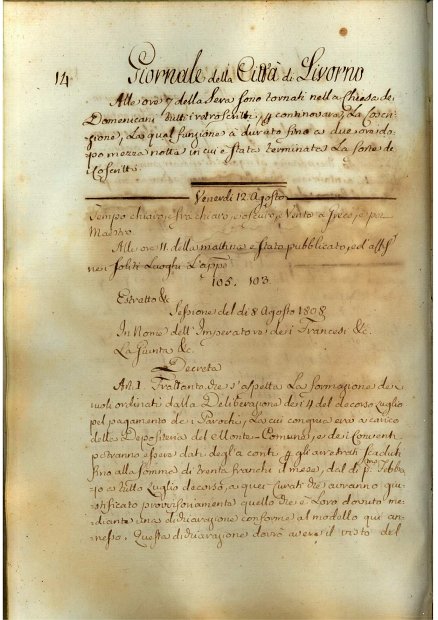 14
Giornale della Città di Livorno
Alle ore 7 della Sera sono tornati nella Chiesa de
Domenicani tutti i retroscritti, p continovare La Coscri-
zione, La qual funzione à durato fino a due ore do-
po mezza notte in cui e stata terminata La sorte de
Coscritti.
Venerdi 12 Agosto
Tempo chiaro, e fra chiaro, e oscuro, e Vento a Greco, e poi
Maestro
Alle ore 11. della mattina e stato pubblicato, ed affisso
nei soliti Luoghi L'appo
105. 103.
Estratto &c
Sessione del di 8 Agosto 1808
In Nome dell'Imperatore dei Francesi &c.
La Giunta &c.
Decreta
Art. 1. Frattanto che s'aspetta La formazione de
ruoli ordinati dalla Deliberazione dei 4 del decorso Luglio
pel pagamento de i Parochi, La cui congrua era a carico
della Depositeria del Monte-Comune, e dei Conventi
potranno essere dati degl'a conti p gli arretrati scaduti
fino alla somma di trenta franchi il mese, dal di pmo Febb-
rajo a tutto Luglio decorso, a quei Curati che avranno giu-
stificato provvisoriamente quello che è Loro dovuto me-
diante una dichiarazione conforme al modello qui an-
nesso. Questa dichiarazione dovrà avere il visto del